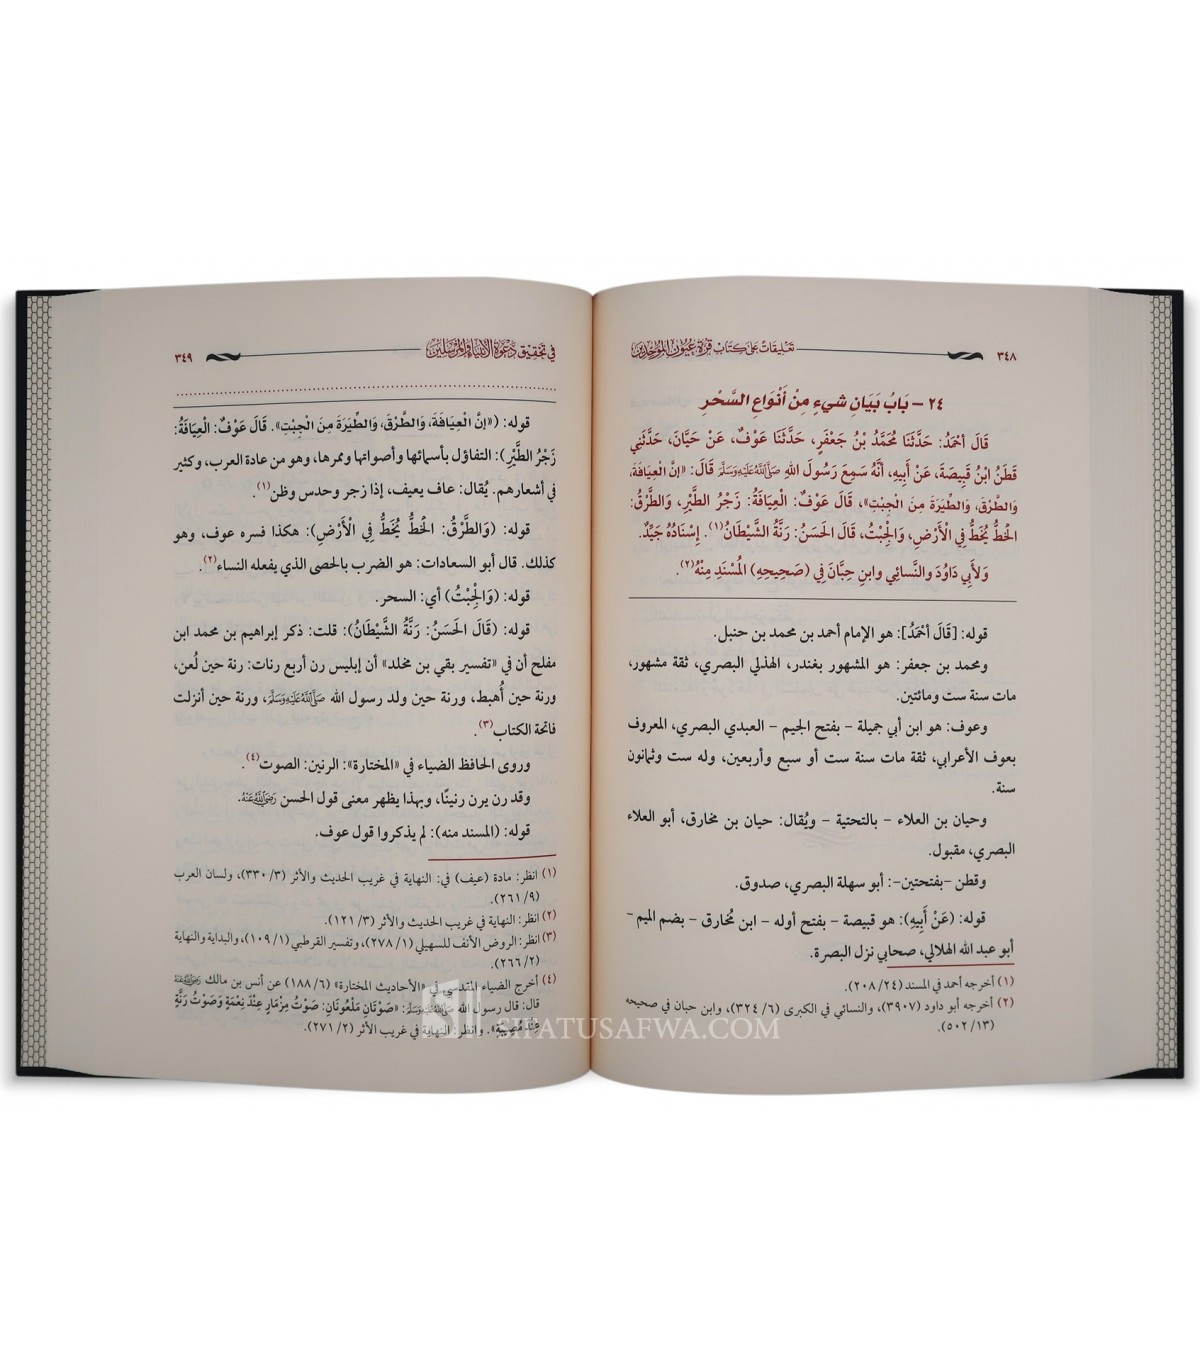 ٣٤٨
تعليقات على كتاب قرة عيون الموحدين
٢٤ - بَابُ بَيَانِ شَيْءٍ مِنْ أَنْوَاعِ السِّحْرِ
قَالَ أَحْمَدُ: حَدَّثَنَا مُحَمَّدُ بْنُ جَعْفَرٍ، حَدَّثَنَا عَوْفٌ، عَنْ حَيَّانَ، حَدَّثَنِي
قَطَنُ ابْنُ قَبِيصَةَ، عَنْ أَبِيهِ، أَنَّهُ سَمِعَ رَسُولَ اللهِ ﷺ قَالَ: «إِنَّ الْعِيَافَةَ،
وَالطَّرْقَ، وَالطِّيَرَةَ مِنَ الْجِبْتِ»، قَالَ عَوْفٌ: الْعِيَافَةُ: زَجْرُ الطَّيْرِ، وَالطَّرْقُ:
الْخَطُّ يُخَطُّ فِي الْأَرْضِ، وَالْجِبْتُ، قَالَ الْحَسَنُ: رَنَّةُ الشَّيْطَانُ(١). إِسْنَادُهُ جَيِّدٌ.
وَلِأَبِي دَاوُدَ وَالنَّسَائِي وَابنِ حِبَّانَ فِي (صَحِيحِهِ) الْمُسْنَد مِنْهُ(٢).
قوله: [قَالَ أَحْمَدُ]: هو الإمام أحمد بن محمد بن حنبل.
ومحمد بن جعفر: هو المشهور بغندر، الهذلي البصري، ثقة مشهور،
مات سنة ست ومائتين.
وعوف: هو ابن أبي جميلة - بفتح الجيم - العبدي البصري، المعروف
بعوف الأعرابي، ثقة مات سنة ست أو سبع وأربعين، وله ست وثمانون
سنة.
وحيان بن العلاء - بالتحتية - ويُقال: حيان بن مخارق، أبو العلاء
البصري، مقبول.
وقطن -بفتحتين-: أبو سهلة البصري، صدوق.
قوله: (عَنْ أَبِيهِ): هو قبيصة - بفتح أوله - ابن مُخارق - بضم الميم -
أبو عبد الله الهلالي، صحابي نزل البصرة.
(١) أخرجه أحمد في المسند (٢٤/ ٢٠٨).
(٢) أخرجه أبو داود (٣٩٠٧)، والنسائي في الكبرى (٦/ ٣٢٤)، وابن حبان في صحيحه
(١٣/ ٥٠٢).
في تحقيق دعوة الأنبياء والمرسلين
٣٤٩
قوله: («إِنَّ الْعِيَافَةَ، وَالطَّرْقَ، وَالطِّيَرَةَ مِنَ الْجِبْتِ». قَالَ عَوْفٌ: الْعِيَافَةُ:
زَجْرُ الطَّيْرِ): التفاؤل بأسمائها وأصواتها وممرها، وهو من عادة العرب، وكثير
في أشعارهم. يُقال: عاف يعيف، إذا زجر وحدس وظن(١).
قوله: (وَالطَّرْقُ: الْخَطُّ يُخَطُّ فِي الْأَرْضِ): هكذا فسره عوف، وهو
كذلك. قال أبو السعادات: هو الضرب بالحصى الذي يفعله النساء(٢).
قوله: (وَالْجِبْتُ) أي: السحر.
قوله: (قَالَ الْحَسَنُ: رَنَّةُ الشَّيْطَانُ): قلت: ذكر إبراهيم بن محمد ابن
مفلح أن في «تفسير بقي بن مخلد» أن إبليس رن أربع رنات: رنة حين لُعن،
ورنة حين أُهبط، ورنة حين ولد رسول الله ﷺ، ورنة حين أنزلت
فاتحة الكتاب(٣).
وروى الحافظ الضياء في «المختارة»: الرنين: الصوت(٤).
وقد رن يرن رنينًا، وبهذا يظهر معنى قول الحسن رَضِيَ اللَّهُ عَنْهُ.
قوله: (المسند منه): لم يذكروا قول عوف.
(١) انظر: مادة (عيف) في: النهاية في غريب الحديث والأثر (٣/ ٣٣٠)، ولسان العرب
(٩/ ٢٦١).
(٢) انظر: النهاية في غريب الحديث والأثر (٣/ ١٢١).
(٣) انظر: الروض الأنف للسهيلي (١/ ٢٧٨)، وتفسير القرطبي (١/ ١٠٩)، والبداية والنهاية
(٢/ ٢٦٦).
(٤) أخرج الضياء المقدسي في «الأحاديث المختارة» (٦/ ١٨٨) عن أنس بن مالك رَضِيَ اللَّهُ عَنْهُ
قال: قال رسول الله ﷺ: «صَوْتَانِ مَلْعُونَانِ: صَوْتُ مِزْمَارٍ عِنْدَ نِعْمَةٍ وَصَوْتُ رَنَّةٍ
عِنْدَ مُصِيبَةٍ». وانظر: النهاية في غريب الأثر (٢/ ٢٧١).
SIFATUSAFWA.COM